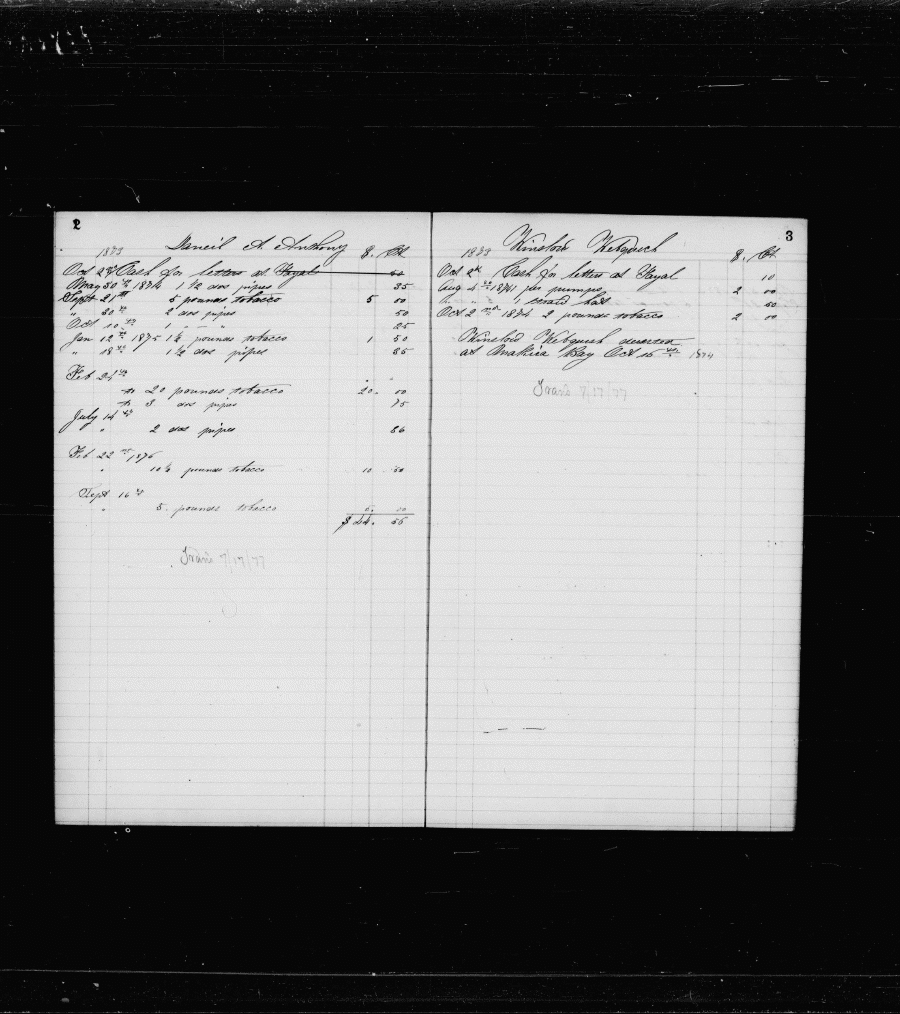 2
1873 Daneil A. Anthony $. Ct.
Oct 2nd Cash for letters at Fayal
May 30th 1874 1 1/2 dos pipes 35
Sept 21st 5 pounds tobacco 5 00
" 30th 2 dos pipes 50
Oct 10th 1 " " " 25
Jan 12th 1875 1 1/2 pounds tobacco 1 50
" 18th 1 1/2 dos pipes 35
Feb 24th
" 20 pounds tobacco 20. 00
" 3 dos pipes 75
July 14th
" 2 dos pipes
Feb 22nd 1876
" 10 1/2 pounds tobacco 10 50
Sept 16th
" 5. pounds tobacco 5. 00
$ 44.
Trans 7/17/77
3
1873 $. Ct.
Oct 2nd Cash for letters at Fayal 10
Aug 4th 1874 1 per pumps 2 00
" " " 1 hat 50
Oct 2nd 1874 2 pounds tobacco 2 00
deserted
at Bay Oct 10th 1874
Trans 7/17/77